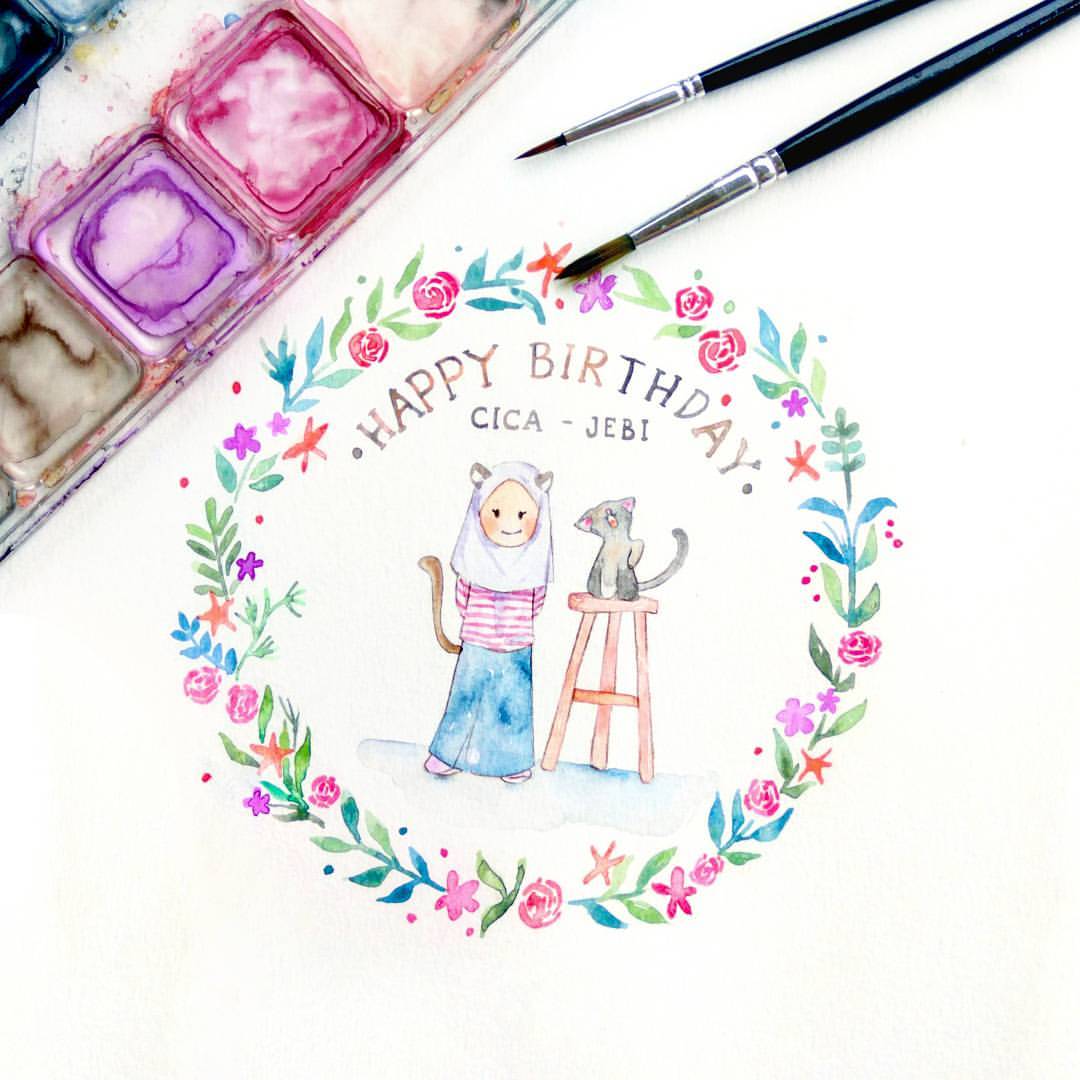 HAPPY BIRTHDAY
CICA - JEBI